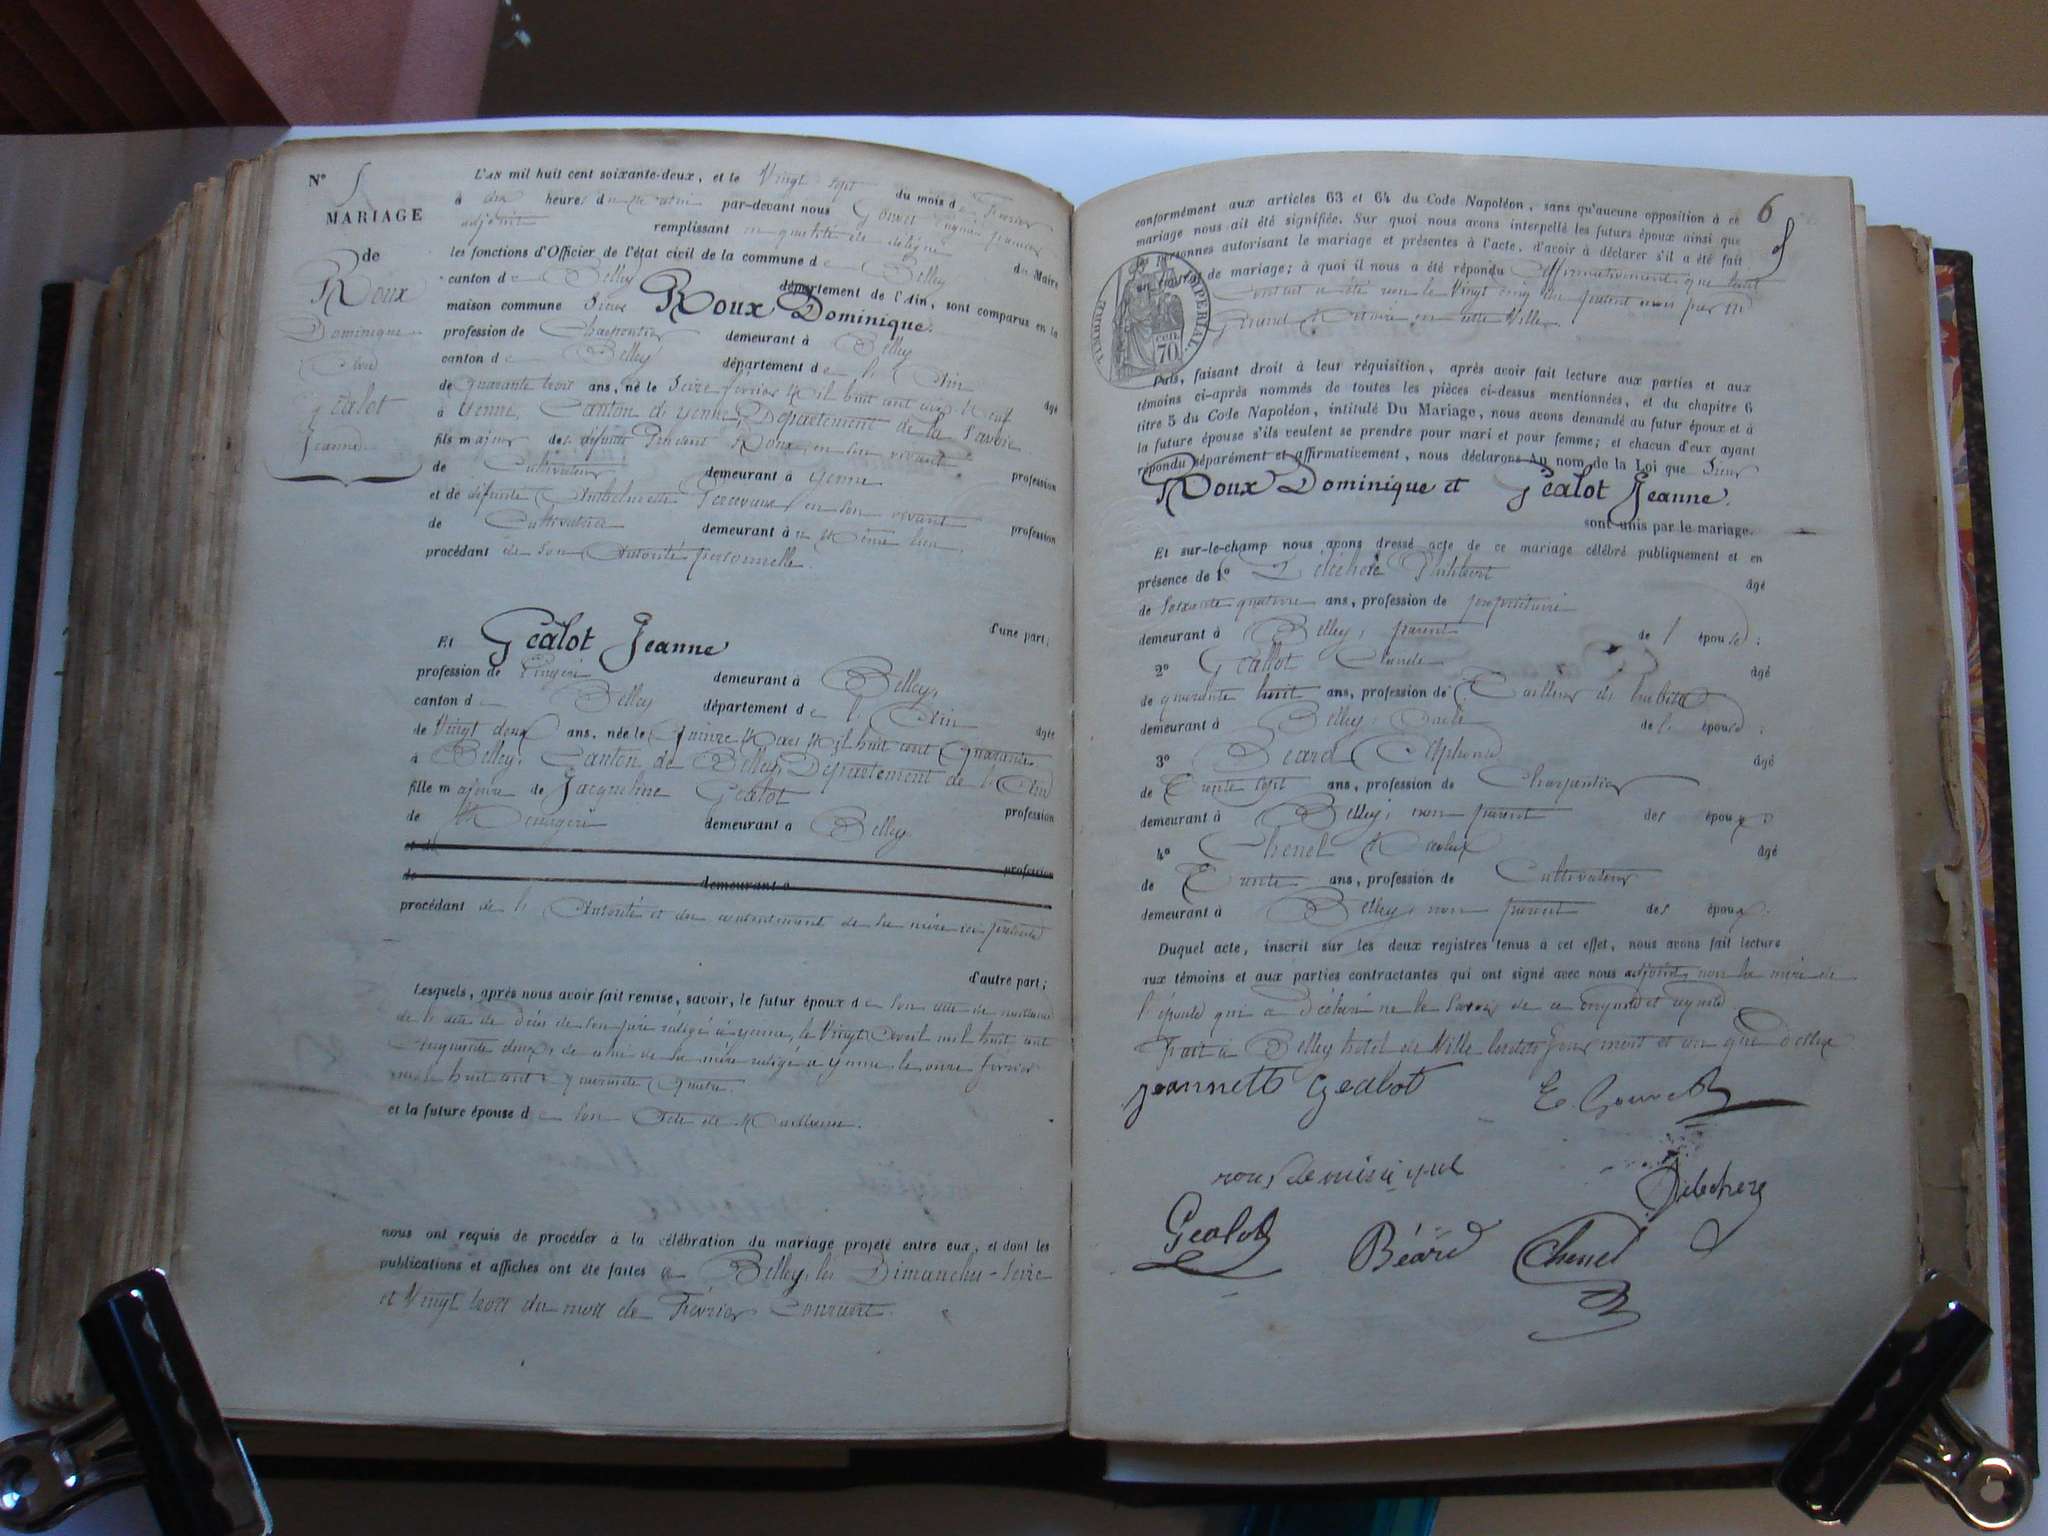 N° 5
MARIAGE
de
Roux
Dominique
et
Géalot
Jeanne
L'AN mil huit cent soixante-deux, et le Vingt sept du mois de Février
à heures du par-devant nous Gouvet
adjoint remplissant en qualité de délégué du Maire
les fonctions d'Officier de l'état civil de la commune de Belley
canton de Belley département de l'Ain, sont comparus en la
maison commune Sieur Roux Dominique
profession de Charpentier demeurant à Belley
canton de Belley département de l'Ain âgé
de quarante trois ans, né le Seize février Mil huit cent dix Neuf
à Yenne, Canton d'Yenne, Département de la Savoie
fils majeur des défunts Roux, en son vivant profession
de Cultivateur demeurant à Yenne
et de défunte en son vivant profession
de Cultivatrice demeurant au Même lieu,
procédant de son Autorité personnelle.
d'une part;
Et Géalot Jeanne
profession de Lingère demeurant à Belley,
canton de Belley département de l'Ain âgée
de Vingt deux ans, née le Quinze Mars Mil huit cent Quarante
à Belley, Canton de Belley, Département de l'Ain
fille majeure de Jacqueline Géalot profession
de Ménagère demeurant à Belley
et de profession
de demeurant à
procédant de l'Autorité et du consentement de sa mère ici présente
d'autre part;
Lesquels, après nous avoir fait remise, savoir, le futur époux de son acte de naissance
de l'acte de Décès de son père rédigé à Yenne, le Vingt Avril mil huit cent
Cinquante deux, de celui de sa mère rédigé à Yenne, le onze février
mil huit cent quarante Quatre.
et la future épouse de son Acte de Naissance.
nous ont requis de procéder à la célébration du mariage projeté entre eux, et dont les
publications et affiches ont été faites à Belley, les Dimanches Seize
et Vingt trois du mois de Février Courant.
6
conformément aux articles 63 et 64 du Code Napoléon, sans qu'aucune opposition à ce
mariage nous ait été signifiée. Sur quoi nous avons interpellé les futurs époux ainsi que
les personnes autorisant le mariage et présentes à l'acte, d'avoir à déclarer s'il a été fait
un contrat de mariage; à quoi il nous a été répondu Affirmativement que ledit
Contrat a été reçu le Vingt cinq du présent mois par Me
Notaire en cette Ville.
TIMBRE IMPERIAL
70 cen.
Puis, faisant droit à leur réquisition, après avoir fait lecture aux parties et aux
témoins ci-après nommés de toutes les pièces ci-dessus mentionnées, et du chapitre 6
titre 5 du Code Napoléon, intitulé Du Mariage, nous avons demandé au futur époux et à
la future épouse s'ils veulent se prendre pour mari et pour femme; et chacun d'eux ayant
répondu séparément et affirmativement, nous déclarons Au nom de la Loi que Sieur
Roux Dominique et Géalot Jeanne
sont unis par le mariage.
Et sur-le-champ nous avons dressé acte de ce mariage célébré publiquement et en
présence de 1° Philibert âgé
de Soixante quatre ans, profession de propriétaire
demeurant à Belley, parent de l'épouse;
2° Géallot Claude âgé
de quarante huit ans, profession de Tailleur d'habits
demeurant à Belley, Oncle de l'épouse;
3° Béard Alphonse âgé
de Trente sept ans, profession de Charpentier
demeurant à Belley, non parent des époux;
4° Chenel âgé
de Trente ans, profession de Cultivateur
demeurant à Belley, non parent des époux.
Duquel acte, inscrit sur les deux registres tenus à cet effet, nous avons fait lecture
aux témoins et aux parties contractantes qui ont signé avec nous adjoint, non la mère de
l'épouse qui a déclaré ne le savoir de ce enquise et requise
Fait à Belley hotel de Ville lesdits jour mois et an que dessus
jeannette gealot
E. Gouvet
roux dominique
Delechere
Gealot
Béard
Chenel